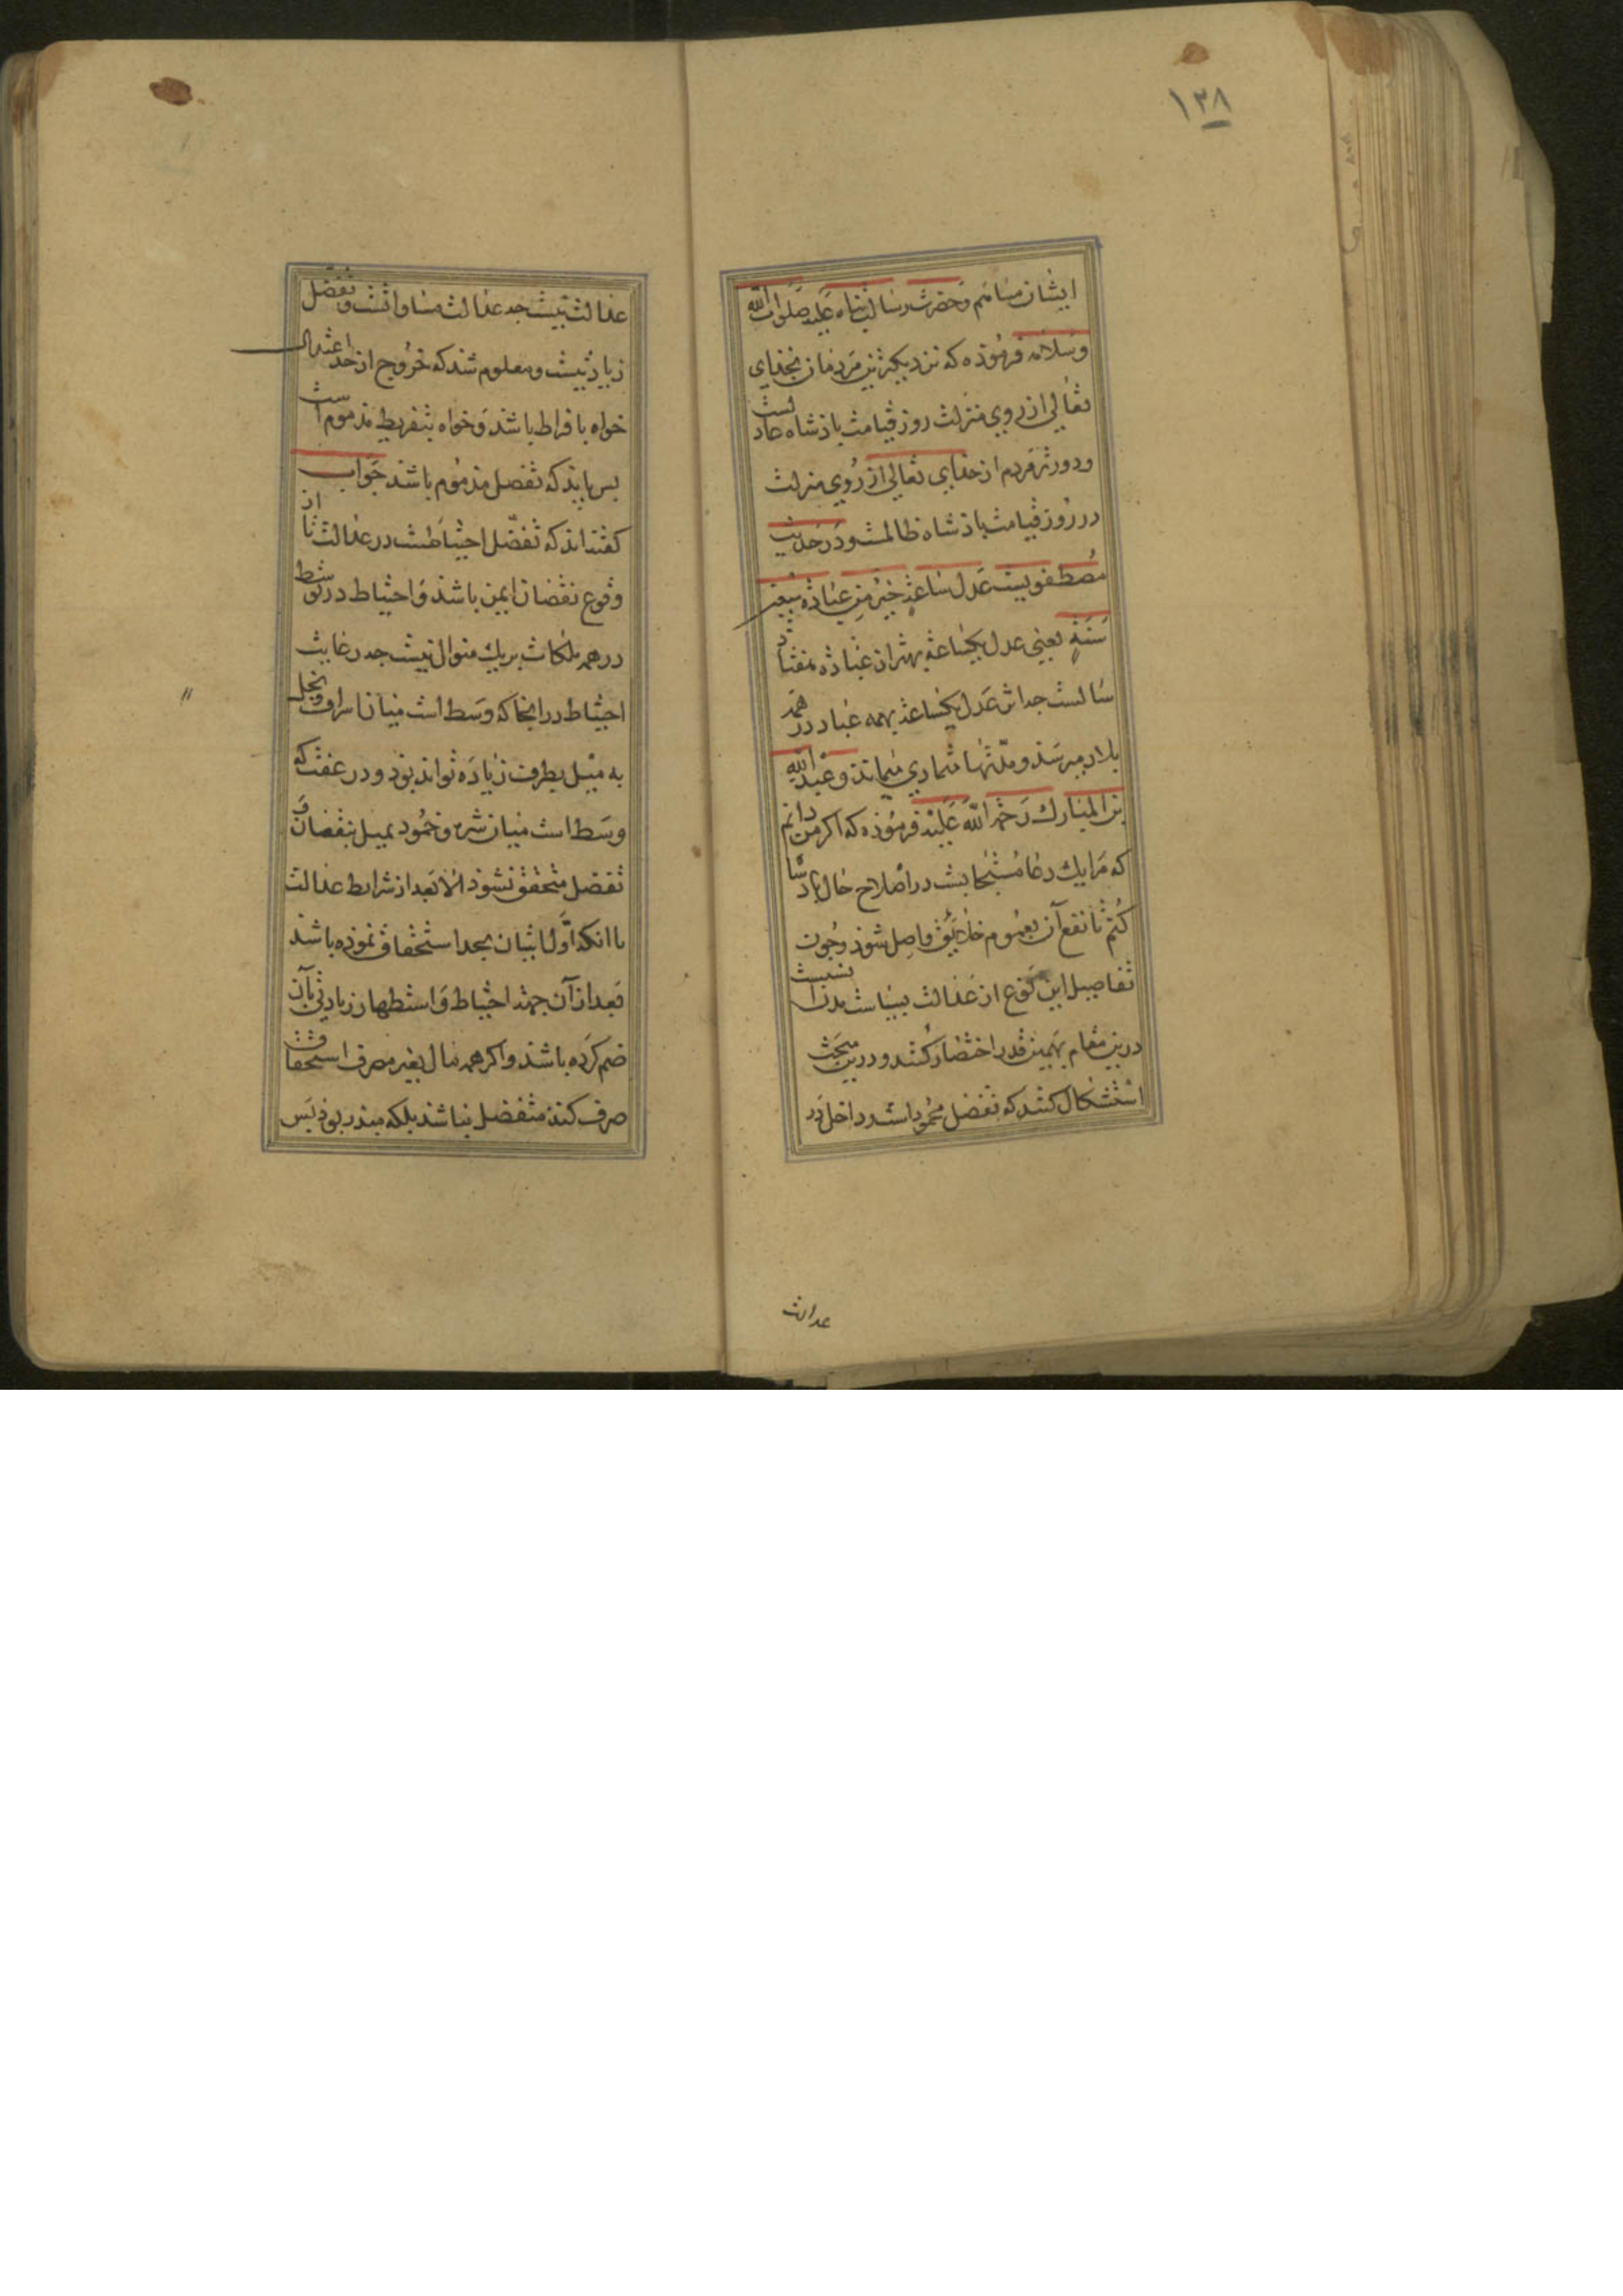 ١٣٨
ایشان میانم و حضرت رسالت پناه علیه صلوات الله
وسلامه فرموذه که نزدیکترین مردمان بخذای
تعالی از روی منزلت روز قیامت باذشاه عادلست
و دورتر مردم از خذای تعالی از روی منزلت
در روز قیامت باذشاه ظالمست و در حدیث
مصطفویست عدل ساعةٍ خیر من عبادة سبعین
سنةٍ یعنی عدل یکساعته بهتر از عباذة هفتاد
سالست جه اثر عدل یکساعته بهمه عباد در همه
بلاد میرسذ و مدّتها متمادی میماند و عبد الله
بن المبارک رحمة الله علیه فرموذه که اکر من دانم
که مرا یک دعا مستجابست در اصلاح حال باذشا
کنم تا نفع آن بعموم خلایق واصل شوذ و جون
تفاصیل این نوع از عدالت
درین مقام بهمین قدر اختصار کنند و درین مبحث
استشکال کنند که تفضل محمود است و داخل در
عدالت
عدالت نیست جه عدالت مساواتست و تفضل
زیادتیست و معلوم شد که خروج از حد اعتدال
خواه بافراط باشد و خواه بتفریط مذموم است
بس بایذ که تفضل مذموم باشد جواب
کفته‌اند که تفضّل احتیاطست در عدالت تا از
وقوع نقصان ایمن باشد و احتیاط در توسط
در همه ملکات بر یک منوال نیست جه رعایت
احتیاط در سخا که وسط است میان اسراف و بخل
به میل بطرف زیاده تواند بوذ و در عفت که
وسط است میان شره و خمود بمیل بنقصان و
تفضل متحقق نشوذ الا بعد از شرایط عدالت
با انکه اوّلا اتیان بحد استحقاق نموذه باشد
بعد از آن جهة احتیاط و استظهار زیادتی بآن
ضم کرده باشد و اکر همه مال بغیر مصرف استحقاق
صرف کند متفضل نباشد بلکه مبذر بوذ بس